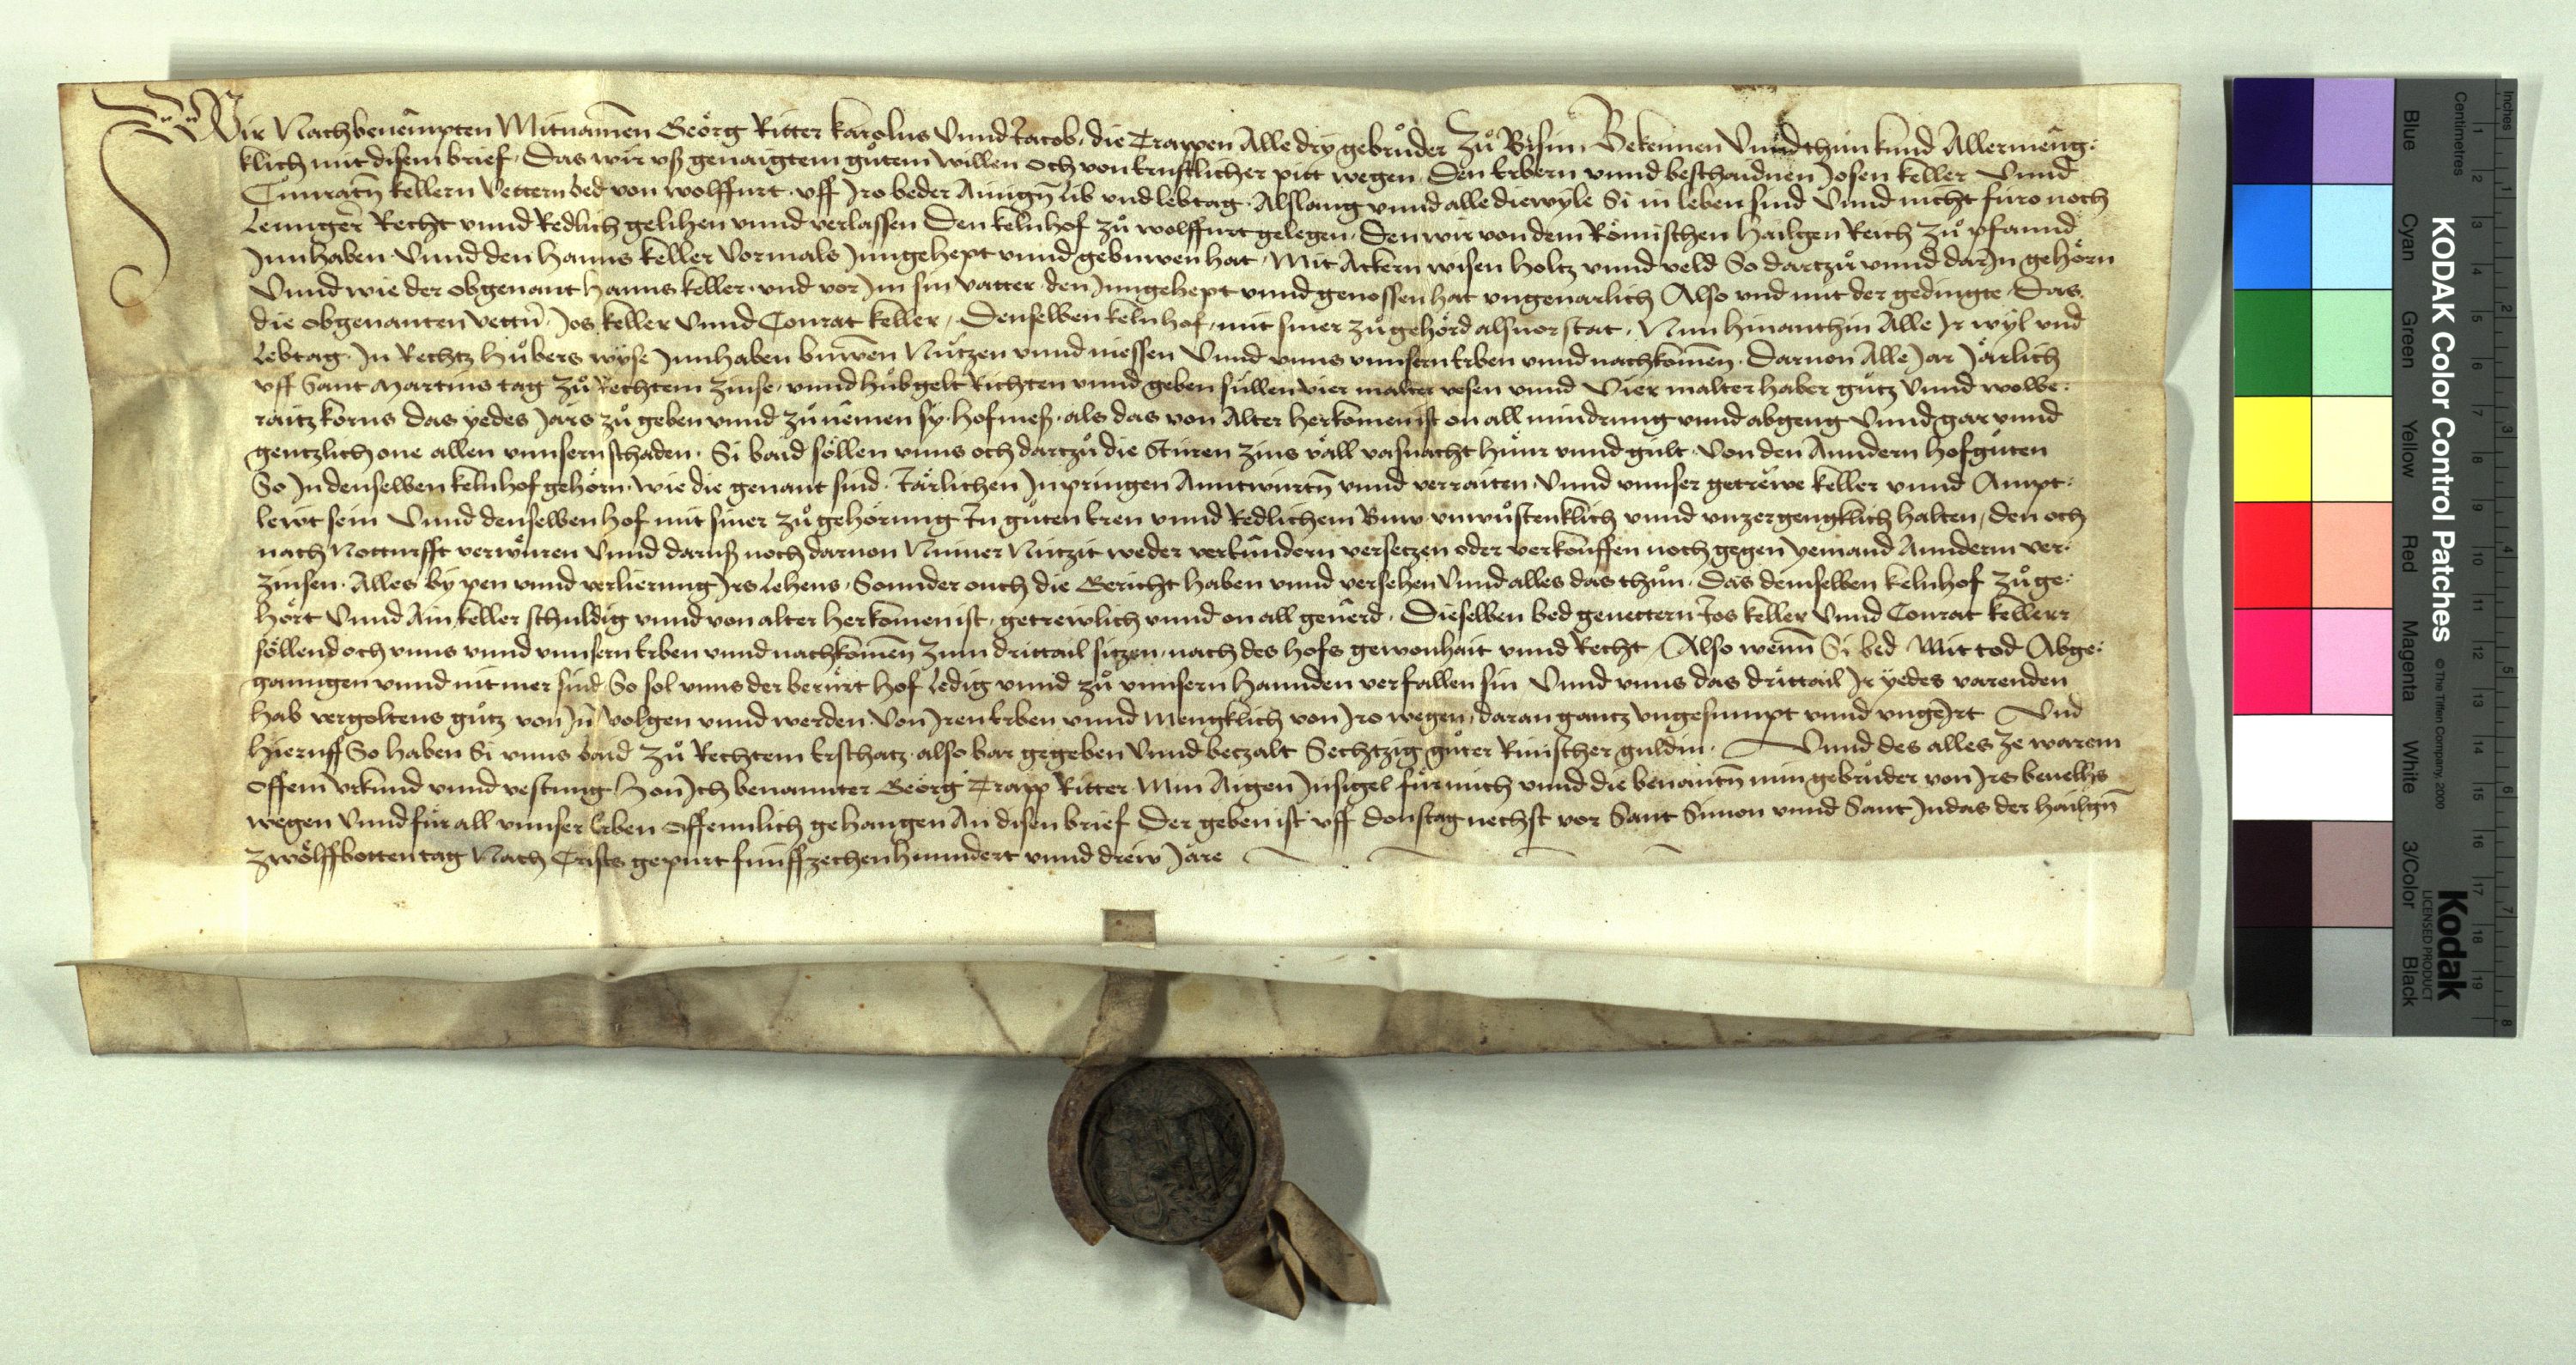 Wir Nachbenempten Mitnamen Geörg Ritter karolus Vnnd Jacob, die Trappen Alle dry gebruͦder Zuͦ Bisin Bekennen Vnnd thun kund Allermeng-
klich mit disem brief, Das wir vß genaigtem guͦtem willen och von Ernstlicher pitt wegen, Den Erbern vnnd beschaidnen Josen keller Vnnd
Cunratn̄ kellern Vettern bed von wolffurt vff Jro beder Ainign̄ lib vnd lebtag, Alslang vnnd alle diewyle Si in leben sind Vnnd nicht furo noch
lennger Recht vnnd Redlich gelihen vnnd verlassen Den kelnhof zuͦ wolffurt gelegen, Den wir von dem Römischen Hailgen Reich zuͦ pfannd
Jnnhaben Vnnd den Hanns keller Vormals Jnngehept vnnd gebuwen hat, Mit Ackern wisen holtz vnnd veld So dartzuͦ vnnd darJn gehörn
Vnnd wie der obgenant Hanns keller vnd vor Jm sin vatter den Jnngehept vnnd genossen hat vngeuarlich Also vnd mit der gedingte, Das
die obgenanten Vettn̄, Jos keller Vnnd Conrat keller, Denselben kelnhof, mit siner zuͦgehörd alsuor stat, Nun hinanthin Alle Jr wyl vnd
lebtag, Jn Rechtz Huͦbers wyse Jnnhaben buwen Nutzen vnnd niessen Vnnd vnns vnnsern Erben vnnd nachkomen, Daruon Alle Jar Järlich
vff Sant martins tag zuͦ Rechtem zinse, vnnd huͦbgelt Richten vnnd geben sullen vier malter vesen vnnd Vier malter haber guͦtz Vnnd wolbe-
raitz korns das yedes Jars zuͦ geben vnnd zuͦ nemen sy, hofmeß, als das von Alter herkomen ist on all mindrung vnnd abgeng Vnnd gar vnnd
gentzlich one allen vnnsern schaden, Si baid söllen vnns och dartzuͦ die Sturen zins väll vasnacht huͤnr vnnd gült, Von den Anndern hofguͤten
So Jn denselben kelnhof gehörn, wie die genant sind, Järlichen Jnpringen Anntwurtn̄ vnnd verraiten Vnnd vnnser getrewe keller vnnd Ampt-
lewt sein Vnnd denselben hof mit siner zuͦgehörung Jn guͦten Eren vnnd Redlichem Buw vnwuͤstenklich vnnd vnzergengklich halten, den och
nach Notturfft verwären Vnnd daruß noch daruon Nimer Nützit weder verkündern versetzen oder verkouffen noch gegen yemand Annderm ver-
zinsen, Alles by pen vnnd verlierung Jrs lehens, Sonnder ouch die Gericht haben vnnd versehen Vnnd alles das thuͦn, Das demselben kelnhof zuͦge-
hört Vnnd Ain keller schuldig vnnd von alter herkomen ist, getrewlich vnnd on all geuerd, Dieselben bed geuettern Jos keller Vnnd Conrat kellerr
söllend och vnns vnnd vnnsern Erben vnnd nachkomen Zum drittail sitzen, nach des hofs gewonhait vnnd Recht, Also wenn Si bed Mit tod Abge-
ganngen vnnd nit mer sind So sol vnns der beruͤrt hof ledig vnnd zuͦ vnnsern Hannden verfallen sin Vnnd vnns das drittail Jr yedes varenden
hab vergoltens guͦtz von Jn̄ Volgen vnnd werden Von Jren Erben vnnd Mengklich von Jro wegen, daran gantz vngesumpt vnnd vngeirt Vnd
hieruff So haben Si vnns baid zuͦ Rechtem Erschatz, also bar gegeben Vnnd betzalt Sechtzig guͦter Rinischer guldin, Vnnd des alles Ze warem
offem Vrkund vnnd vestung Hon Jch benannter Geörg Trapp Ritter Min Aigen Jnsigel für mich vnnd die benantn̄ min gebruͦder von Jrs beuelhs
wegen Vnnd für all vnnser Erben Offennlich gehangen An disen brief Der geben ist vff donstag nechst vor Sant Simon vnnd Sant Judas der Hailgn̄
Zwölffbotten tag Nach Crists gepurt funffzechenhundert vnnd drew Jare
KODAK Color Control Patches
© The Tiffen Company, 2000
Kodak
LICENSED PRODUCT
Inches
Centimetres
Blue Cyan Green Yellow Red Magenta White 3/Color Black
1 2 3 4 5 6 7 8
1 2 3 4 5 6 7 8 9 10 11 12 13 14 15 16 17 18 19